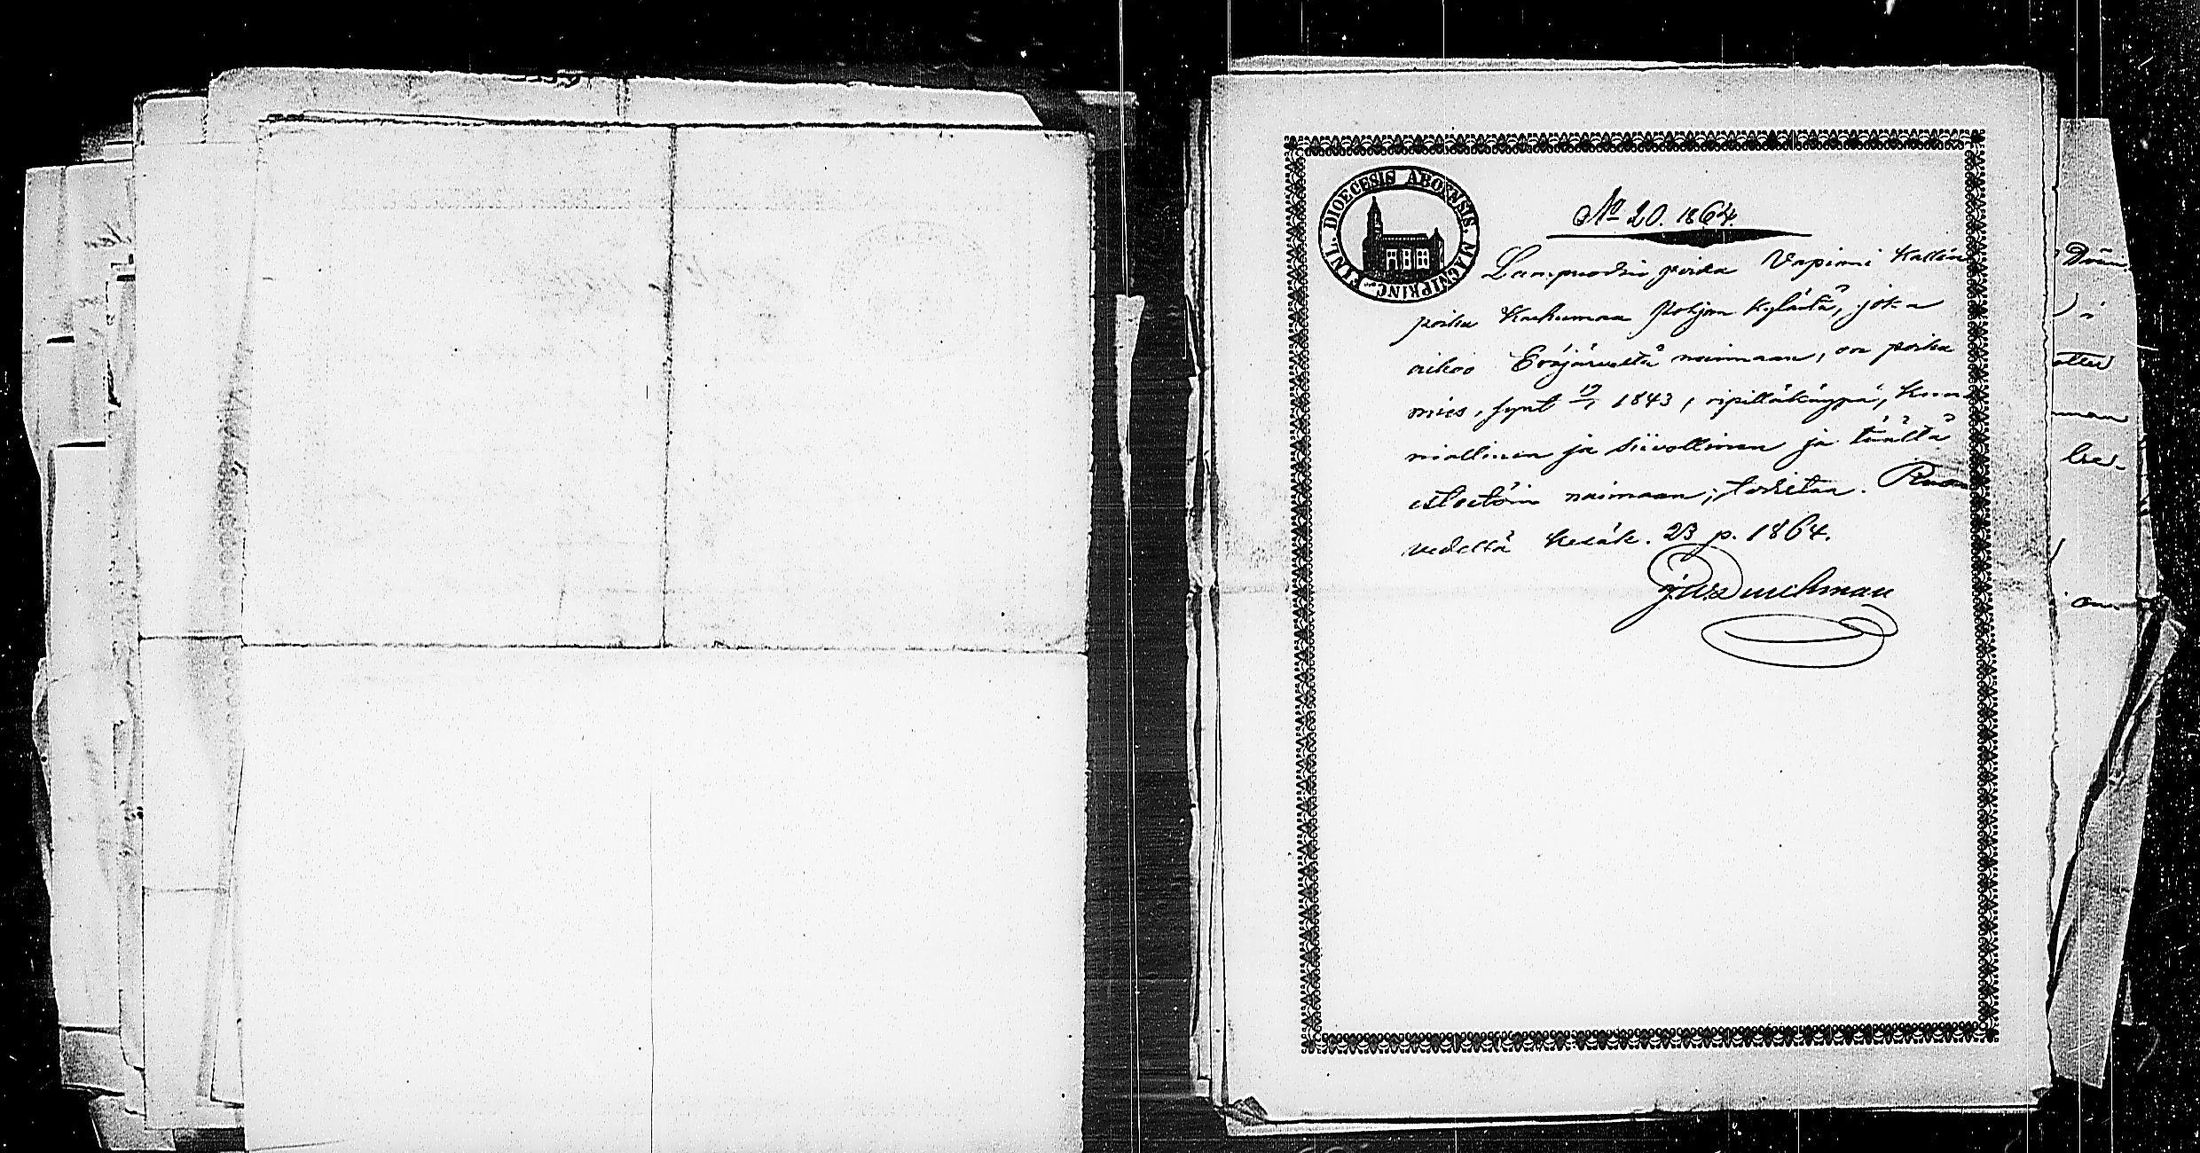 DIOECESIS ABOENSIS MAGNI PRINC. FINL.
No 20. 1864.
Lampuodin poika Vapiimi Kallen
poika Kauhumaa Pohjan kylästä, joka
aikoo Eräjäruellä naimaan, on poika
mies, synt 19/1 1843, ripilläkäypä, Kun-
niallinen ja siivollinen ja täältä
estoetöin naimaan; todistaa. Ruo-
vedeltä Kesäk. 23 p. 1864.
Duchman
otter
man